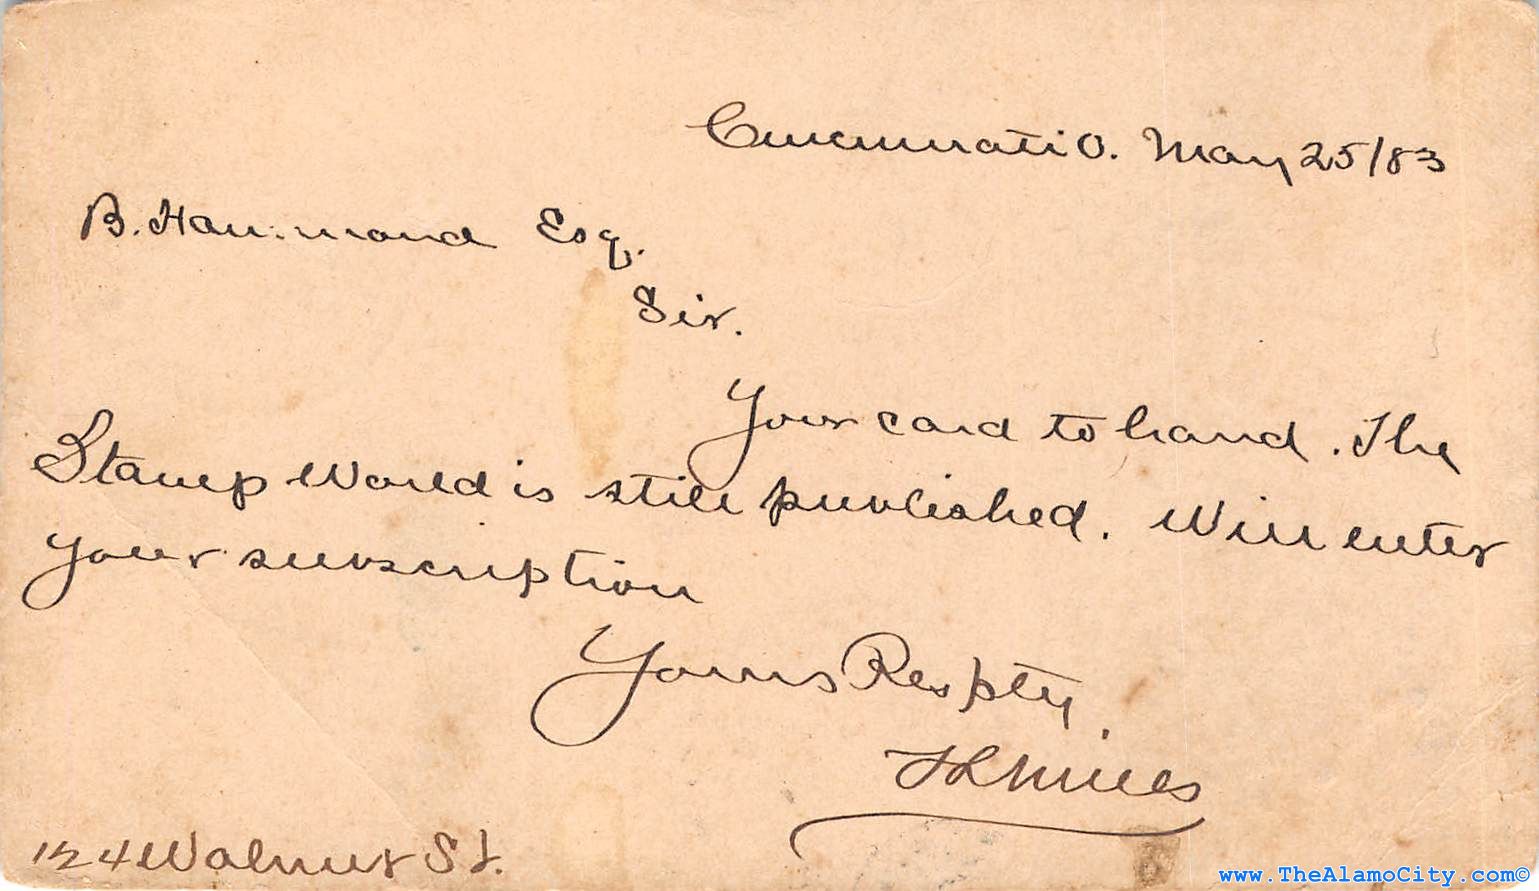 Cincinnati O. May 25/83
B. Hammond Esq.
Sir.
Your card to hand. The
Stamp World is still published. Will enter
your subscription
Yours Respty.
Mills
124 Walnut St.
www.TheAlamoCity.com©